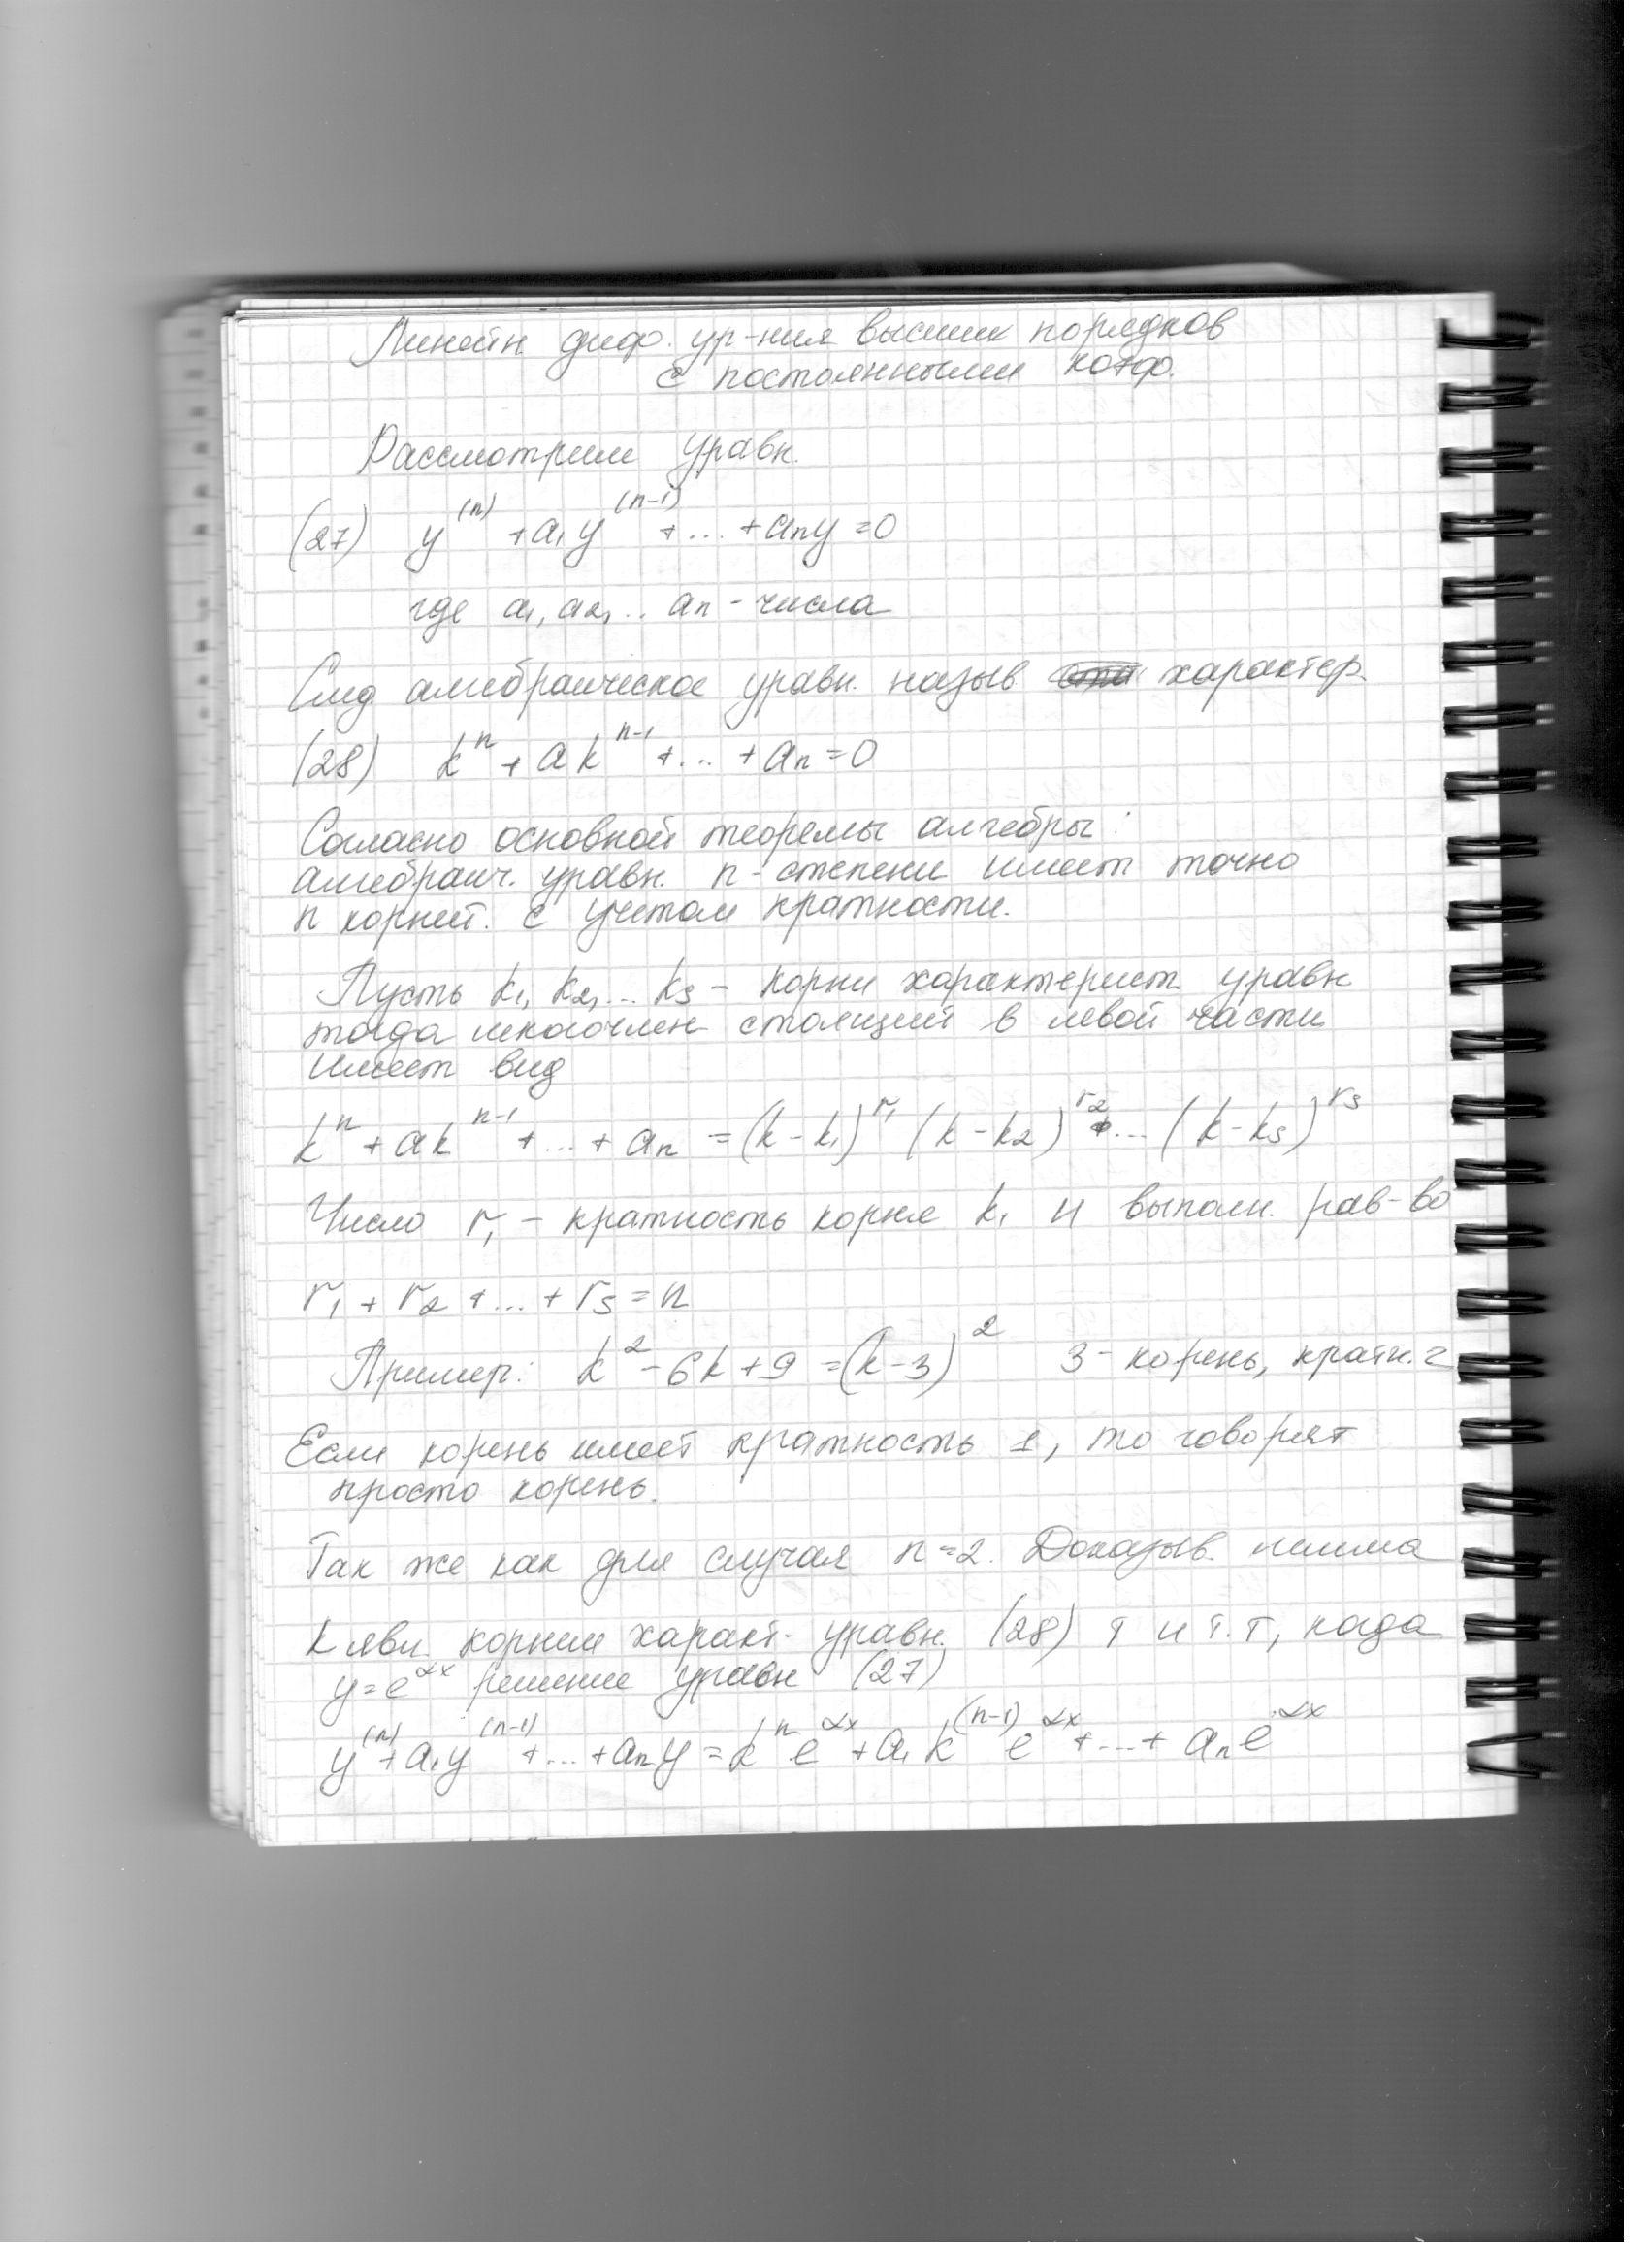 Линейн диф. ур-ния высших порядков
с постоянными коэф.
Рассмотрим уравн.
(27) y^(n) + a₁y^(n-1) + ... + aₙy = 0
где a₁, a₂, .. aₙ - числа
След алгебраическое уравн. назыв характер.
(28) k^n + ak^(n-1) + ... + aₙ = 0
Согласно основной теоремы алгебры:
алгебраич. уравн. n - степени имеет точно
n корней. с учетом кратности.
Пусть k₁, k₂, ... kₛ - корни характерист. уравн
тогда многочлен стоящий в левой части
имеет вид
k^n + ak^(n-1) + ... + aₙ = (k - k₁)^r₁ (k - k₂)^r₂ ... (k - kₛ)^rₛ
Число r₁ - кратность корня k₁ и выполн. рав-во
r₁ + r₂ + ... + rₛ = n
Пример: k² - 6k + 9 = (k - 3)² 3 - корень, кратн. 2
Если корень имеет кратность 1, то говорят
просто корень.
Так же как для случая n = 2. Доказыв. лемма
k явл. корнем характ. уравн. (28) т и т.т, когда
y = e^αx решение уравн (27)
y^(n) + a₁y^(n-1) + ... + aₙy = k^n e^αx + a₁k^(n-1) e^αx + ... + aₙe^αx